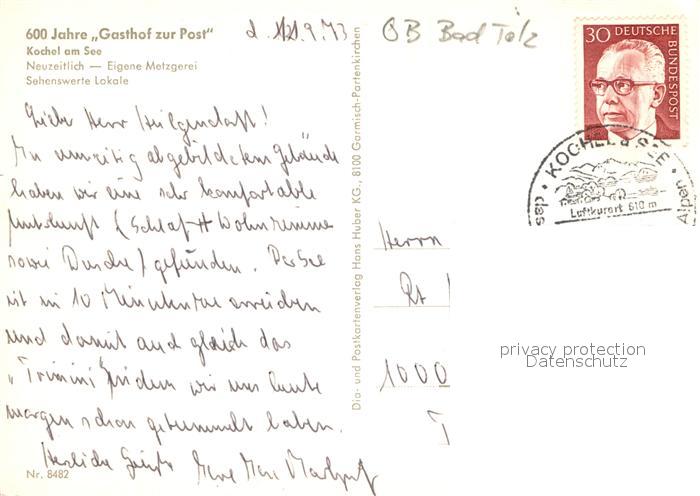 600 Jahre „Gasthof zur Post"
Kochel am See
Neuzeitlich — Eigene Metzgerei
Sehenswerte Lokale
d. 9.73
OB Bad Tölz
30 DEUTSCHE BUNDESPOST
KOCHEL a. SEE
das Alpen
Luftkurort 610 m
Herr
Im umseitig abgebildeten Gebäude
haben wir eine sehr komfortable
Unterkunft (Schlaf- + Wohnzimmer
sowie Dusche) gefunden. Der See
ist in 10 Minuten zu erreichen
und damit auch gleich das
wir uns heute
morgen schon getummelt haben.
Herzliche Grüße
Dia- und Postkartenverlag Hans Huber KG., 8100 Garmisch-Partenkirchen
Herrn
1000
privacy protection
Datenschutz
Nr. 8482